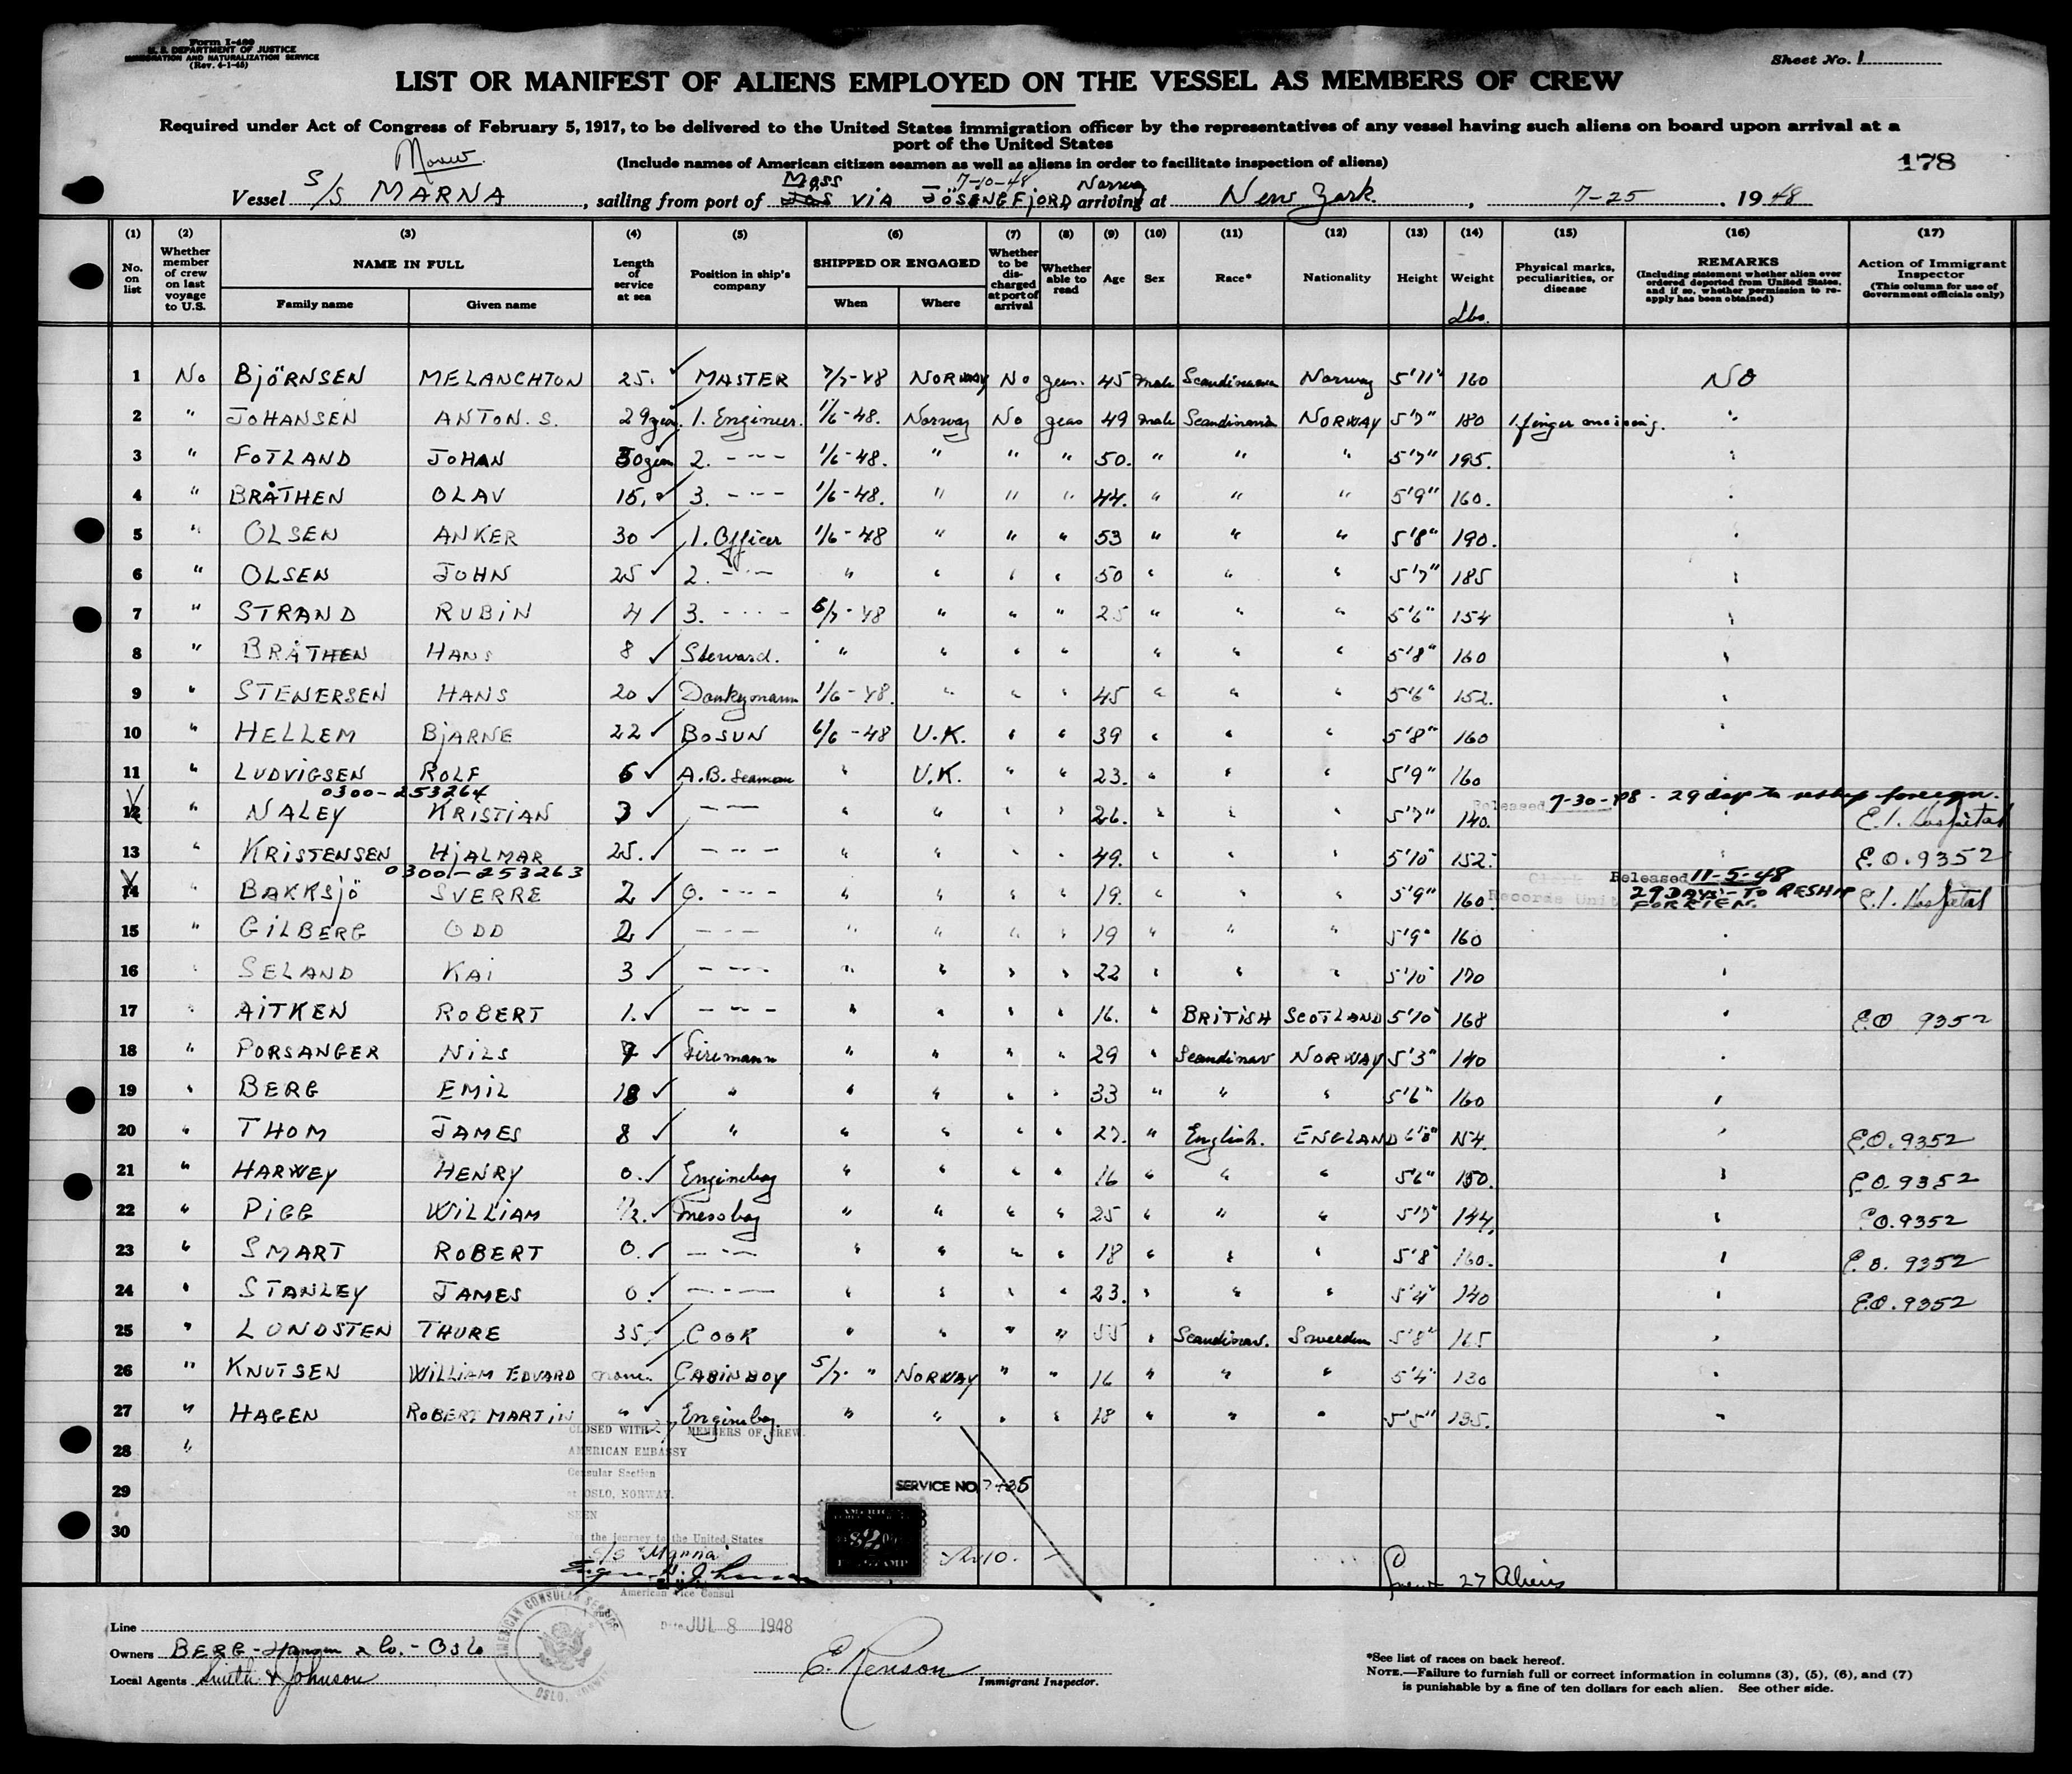 Form I-480
U. S. DEPARTMENT OF JUSTICE
IMMIGRATION AND NATURALIZATION SERVICE
(Rev. 4-1-45)
Sheet No. 1
LIST OR MANIFEST OF ALIENS EMPLOYED ON THE VESSEL AS MEMBERS OF CREW
Required under Act of Congress of February 5, 1917, to be delivered to the United States immigration officer by the representatives of any vessel having such aliens on board upon arrival at a
port of the United States
(Include names of American citizen seamen as well as aliens in order to facilitate inspection of aliens)
178
Moss 7-10-48 Norway
Vessel S/S MARNA, sailing from port of VIA JÖSENGFJORD, arriving at New York, 7-25, 1948
(1) (2) (3) (4) (5) (6) (7) (8) (9) (10) (11) (12) (13) (14) (15) (16) (17)
No. on list
Whether member of crew on last voyage to U.S.
NAME IN FULL
Family name Given name
Length of service at sea
Position in ship's company
SHIPPED OR ENGAGED
When Where
Whether to be discharged at port of arrival
Whether able to read
Age Sex Race* Nationality Height Weight Lbs.
Physical marks, peculiarities, or disease
REMARKS
(Including statement whether alien ever ordered deported from United States, and if so, whether permission to re-apply has been obtained)
Action of Immigrant Inspector
(This column for use of Government officials only)
1 No BJÖRNSEN MELANCHTON 25. MASTER 7/7-48 NORWAY No yes. 45 male Scandinavia Norway 5'11" 160 NO
2 " JOHANSEN ANTON. S. 29 1. Engineer. 1/6-48. Norway No yes 49 male Scandinavia NORWAY 5'7" 180 1. finger missing. "
3 " FOTLAND JOHAN 30 2. - -- - 1/6-48. " " " 50. " " " 5'7" 195. "
4 " BRÅTHEN OLAV 15. 3. - -- - 1/6-48. " " " 44. " " " 5'9" 160. "
5 " OLSEN ANKER 30 1. Officer 1/6-48 " " " 53 " " " 5'8" 190. "
6 " OLSEN JOHN 25 2. - -- " " " " 50 " " " 5'7" 185 "
7 " STRAND RUBIN 4 3. - -- - 5/7-48 " " " 25 " " " 5'6" 154 "
8 " BRÅTHEN HANS 8 Steward. " " " " " " " 5'8" 160 "
9 " STENERSEN HANS 20 Donkeymann 1/6-48. " " " 45 " " " 5'6" 152. "
10 " HELLEM BJARNE 22 BOSUN 6/6-48 U.K. " " 39 " " " 5'8" 160 "
11 " LUDVIGSEN ROLF 6 A.B. Seaman " U.K. " " 23. " " " 5'9" 160 "
0300-253264
Released 7-30-48 - 29 days to reship foreign.
12 " NALEY KRISTIAN 3 - -- " " " " 26. " " " 5'7" 140. " E.I. Hospital
13 " KRISTENSEN HJALMAR 25. - -- - " " " " 49. " " " 5'10" 152. " E.O. 9352
0300-253263
Records Unit Released 11-5-48
29 DAYS - TO RESHIP
14 " BAKKSJÖ SVERRE 2 O. - -- - " " " " 19. " " " 5'9" 160 E.I. Hospital
15 " GILBERG ODD 2 - -- - " " " " 19 " " " 5'9" 160 "
16 " SELAND KAI 3 - -- - " " " " 22 " " " 5'10" 170 "
17 " AITKEN ROBERT 1. - -- - " " " " 16. " BRITISH SCOTLAND 5'10" 168 " E.O 9352
18 " PORSANGER NILS 7 Firemann " " " " 29 " Scandinav NORWAY 5'3" 140 "
19 " BERG EMIL 18 " " " " " 33 " " " 5'6" 160 "
20 " THOM JAMES 8 " " " " " 27. " English. ENGLAND 154. " E.O. 9352
21 " HARWEY HENRY 0. Engineboy " " " " 16 " " " 5'6" 150. " E.O. 9352
22 " PIGG WILLIAM 1/2. Messboy " " " " 25 " " " 5'7" 144. " E.O. 9352
23 " SMART ROBERT 0. - -- " " " " 18 " " " 5'8" 160. " E.O. 9352
24 " STANLEY JAMES 0. - -- - " " " " 23. " " " 5'4" 140 " E.O. 9352
25 " LUNDSTEN THURE 35 COOK " " " " 55 " Scandinav. Sweeden 5'8" 165 "
26 " KNUTSEN WILLIAM EDVARD none. CABINBOY 5/7. " NORWAY " " 16 " " " 5'4" 130 "
27 " HAGEN ROBERT MARTIN " Engineboy. " " " " 18 " " " 5'5" 135. "
28 "
29
30
CLOSED WITH 27 MEMBERS OF CREW.
AMERICAN EMBASSY
Consular Section
at OSLO, NORWAY.
SEEN
For the journey to the United States
S/S "Marna"
American Vice Consul
SERVICE NO. 7435
No 10.
Crew 27 Aliens
AMERICAN CONSULAR SERVICE
OSLO, NORWAY
Date JUL 8 1948
Line
Owners BERG-Hansen & Co. - Oslo
Local Agents Smith & Johnson
E. Renson
Immigrant Inspector.
*See list of races on back hereof.
NOTE.—Failure to furnish full or correct information in columns (3), (5), (6), and (7)
is punishable by a fine of ten dollars for each alien. See other side.